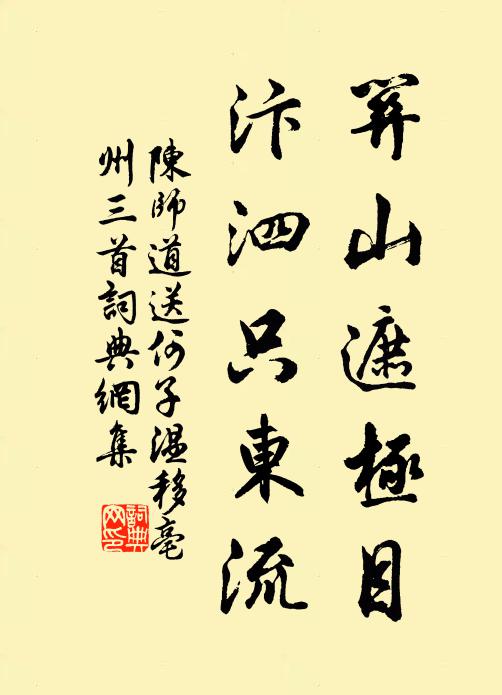 笄山遮極目
汴泗只東流
陳師道送何子温移亳
州三首詞典網集
詞典
网印